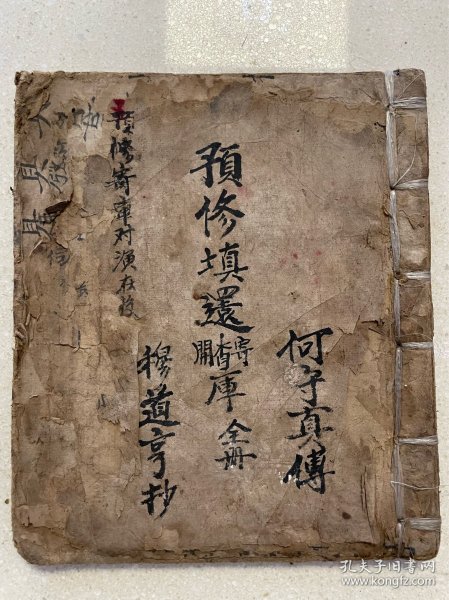 何子真傳
預修填還寄查開庫全册
穆道亨抄
預修寄庫对演在後
孔夫子旧书网
www.kongfz.com